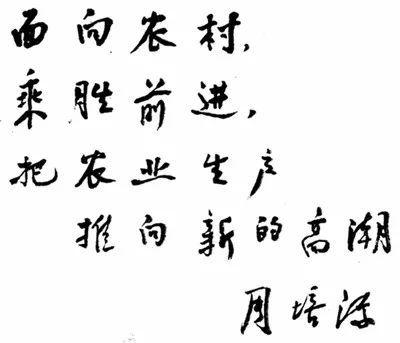 面向农村，
乘胜前进，
把农业生产
推向新的高潮
周培源